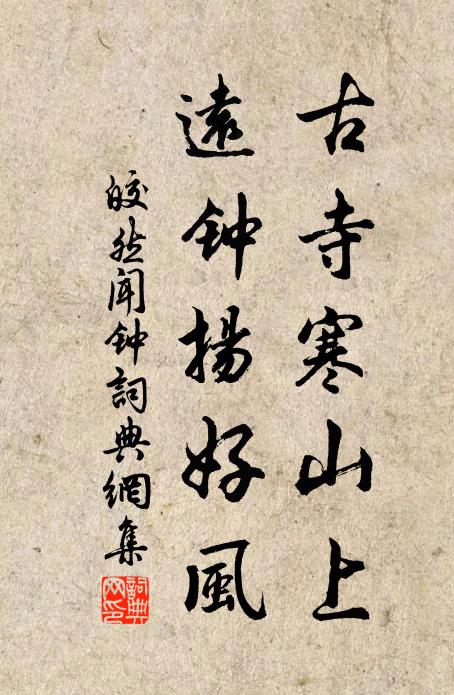 古寺寒山上
遠钟揚好風
皎然闻钟詞典網集
詞典網印